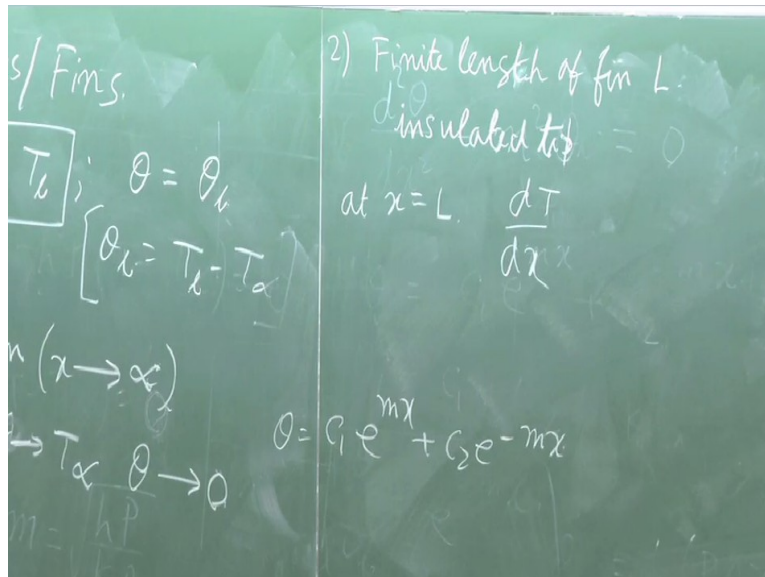 s/ Fins.
T_i ; θ = θ_i
[θ_i = T_i - T_∝]
(x → ∝)
→ T_∝ θ → 0
m = √hP
2) Finite length of fin L.
insulated tip
at x = L. dT/dx
θ = C₁ e^{mx} + C₂ e^{-mx}